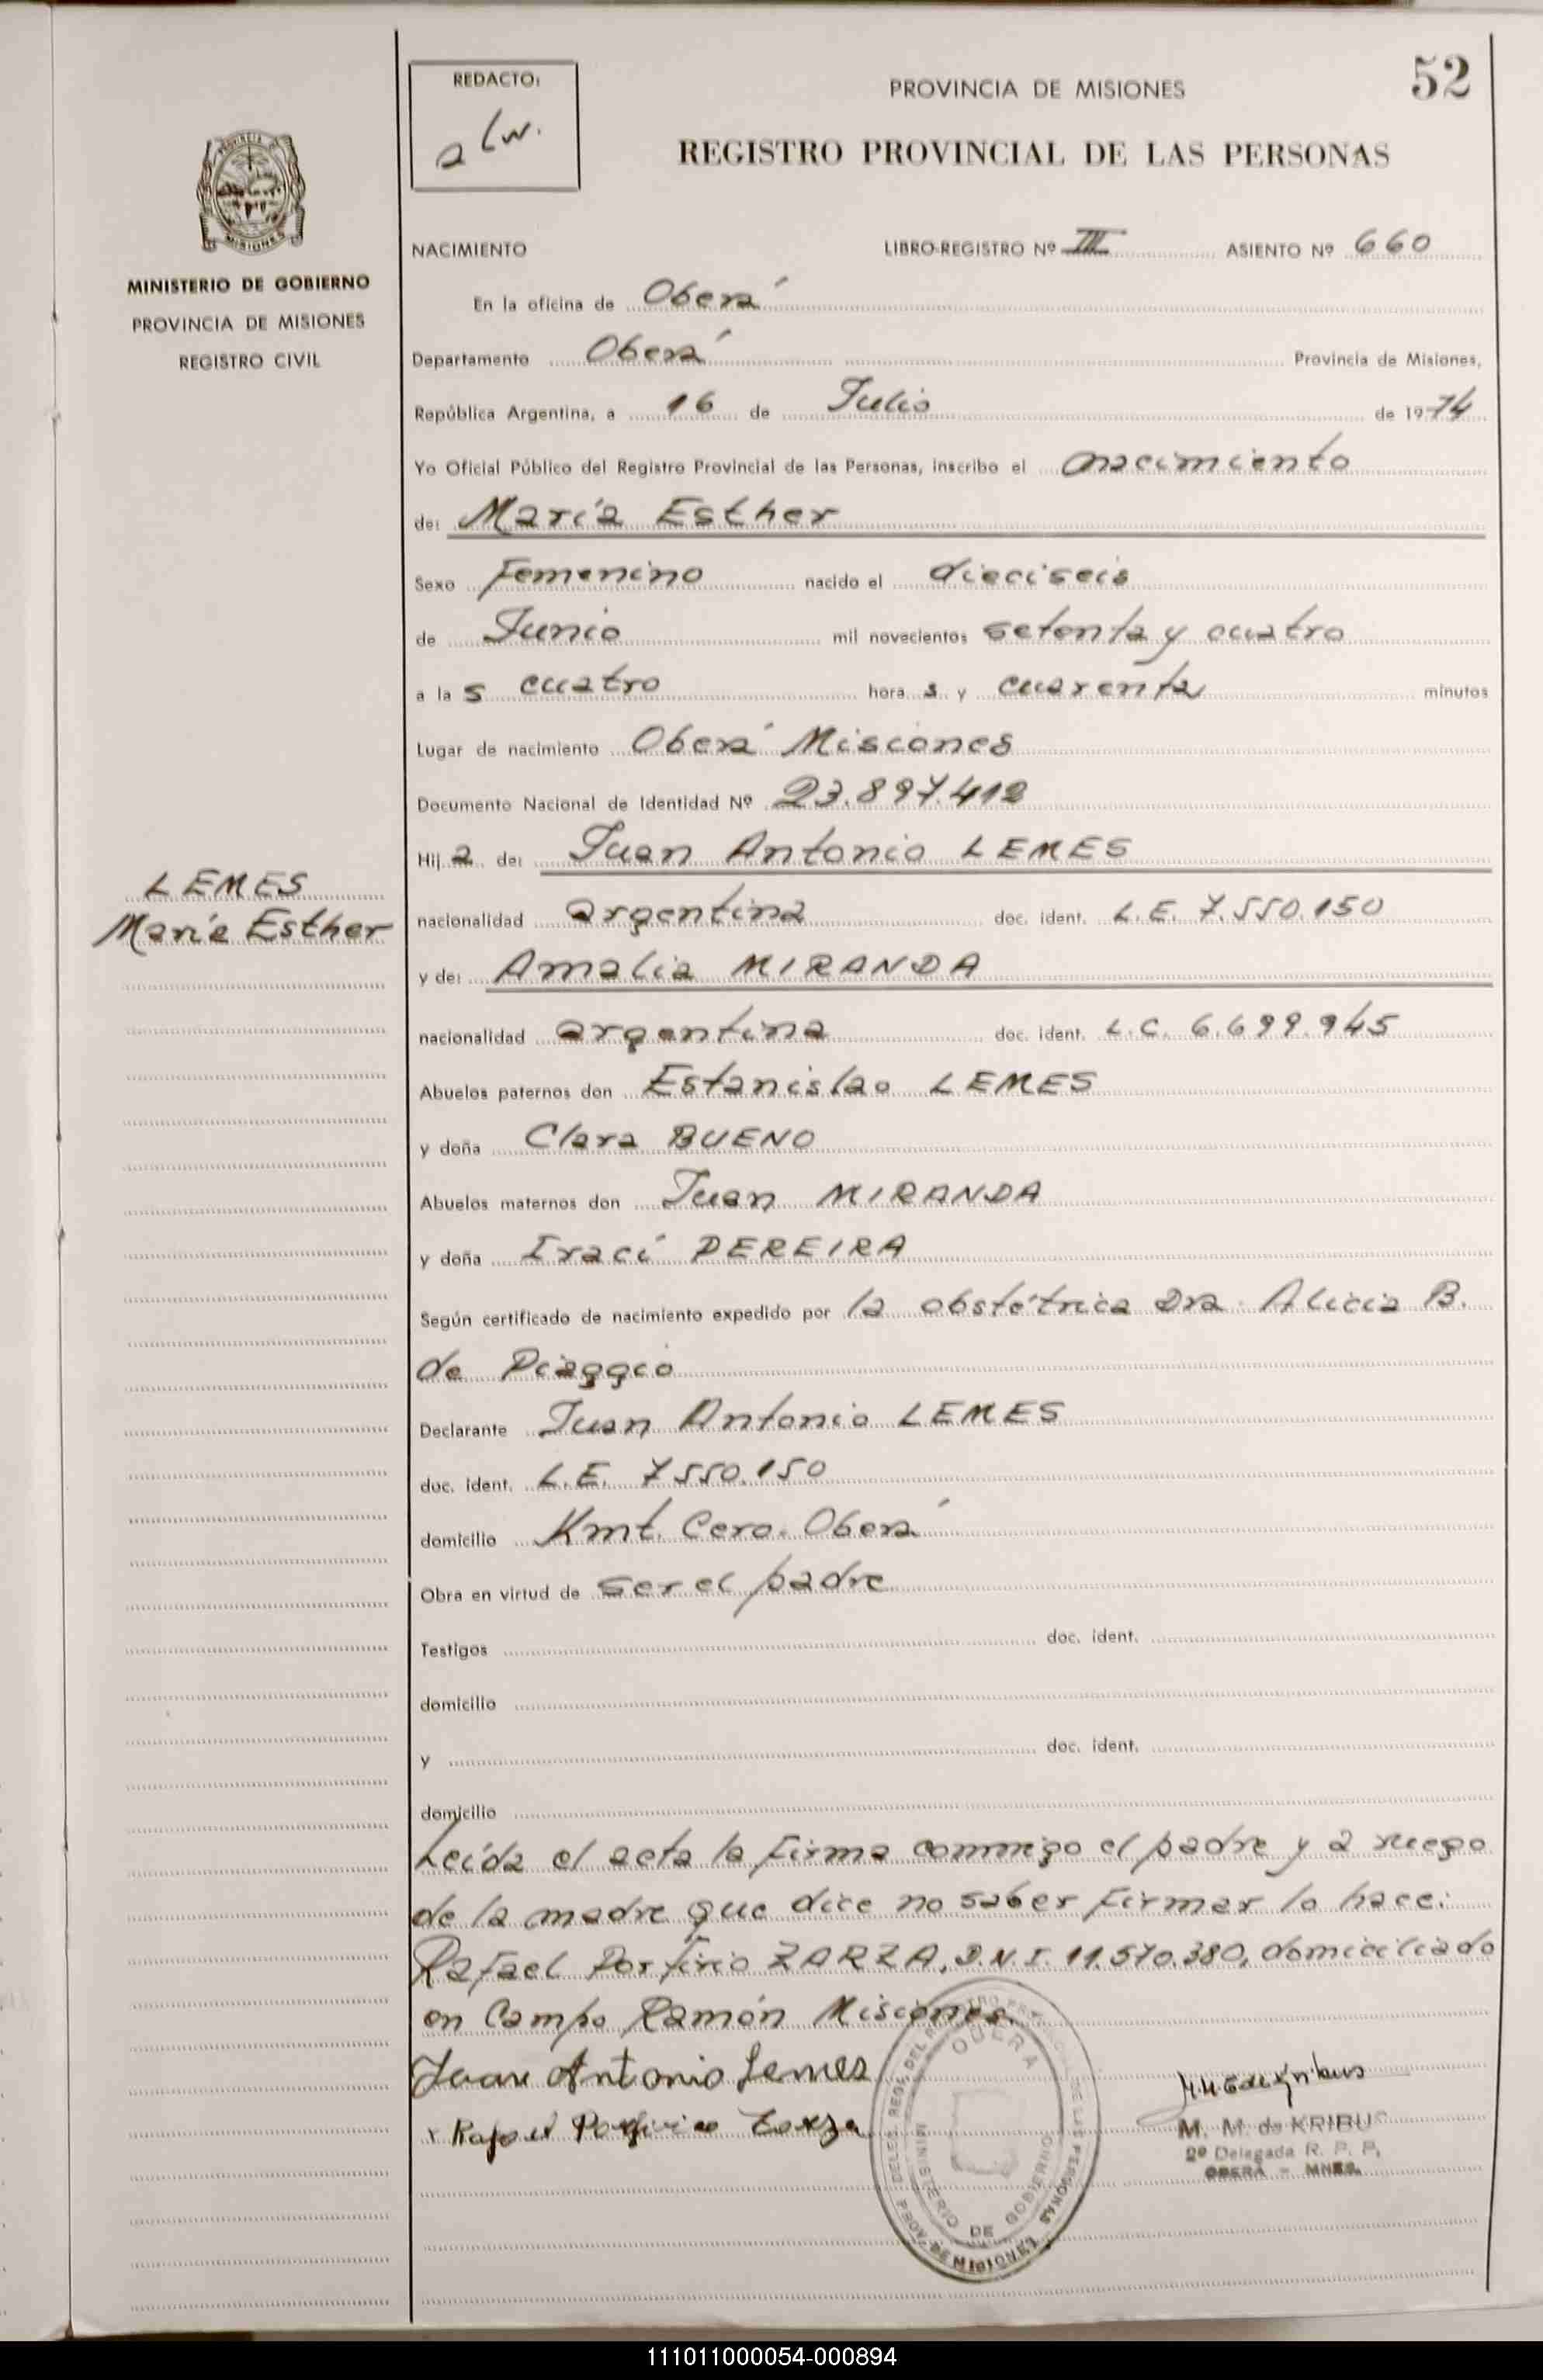 52
REDACTO:
PROVINCIA DE MISIONES
REGISTRO PROVINCIAL DE LAS PERSONAS
MINISTERIO DE GOBIERNO
PROVINCIA DE MISIONES
REGISTRO CIVIL
NACIMIENTO LIBRO-REGISTRO Nº III ASIENTO Nº 660
En la oficina de Oberá
Departamento Oberá Provincia de Misiones,
República Argentina, a 16 de Julio de 1974
Yo Oficial Público del Registro Provincial de las Personas, inscribo el nacimiento
de: María Esther
Sexo Femenino nacido el dieciseis
de Junio mil novecientos setenta y cuatro
a la s cuatro hora s y cuarenta minutos
Lugar de nacimiento Oberá Misiones
Documento Nacional de Identidad Nº 23.897.412
Hij a de: Juan Antonio LEMES
LEMES
María Esther
nacionalidad argentina doc. ident. L.E. 7.550.150
y de: Amalia MIRANDA
nacionalidad argentina doc. ident. L.C. 6.699.945
Abuelos paternos don Estanislao LEMES
y doña Clara BUENO
Abuelos maternos don Juan MIRANDA
y doña Iraci PEREIRA
Según certificado de nacimiento expedido por la obstétrica Dra. Alicia B.
de Piaggio
Declarante Juan Antonio LEMES
doc. ident. L.E. 7550.150
domicilio Kmt. Cero. Oberá
Obra en virtud de ser el padre
Testigos doc. ident.
domicilio
y doc. ident.
domicilio
Leída el acta la firma conmigo el padre y a ruego
de la madre que dice no saber firmar lo hace:
Rafael Porfirio ZARZA, D.N.I. 11.570.380, domiciliado
en Campo Ramón Misiones.
Juan Antonio Lemes
x Rafael Porfirio Zarza
OBERA
MINISTERIO DE GOBIERNO
PROV. DE MISIONES
M. M. de KRIBUS
2º Delegada R. P. P.
OBERA - MNES.
111011000054-000894